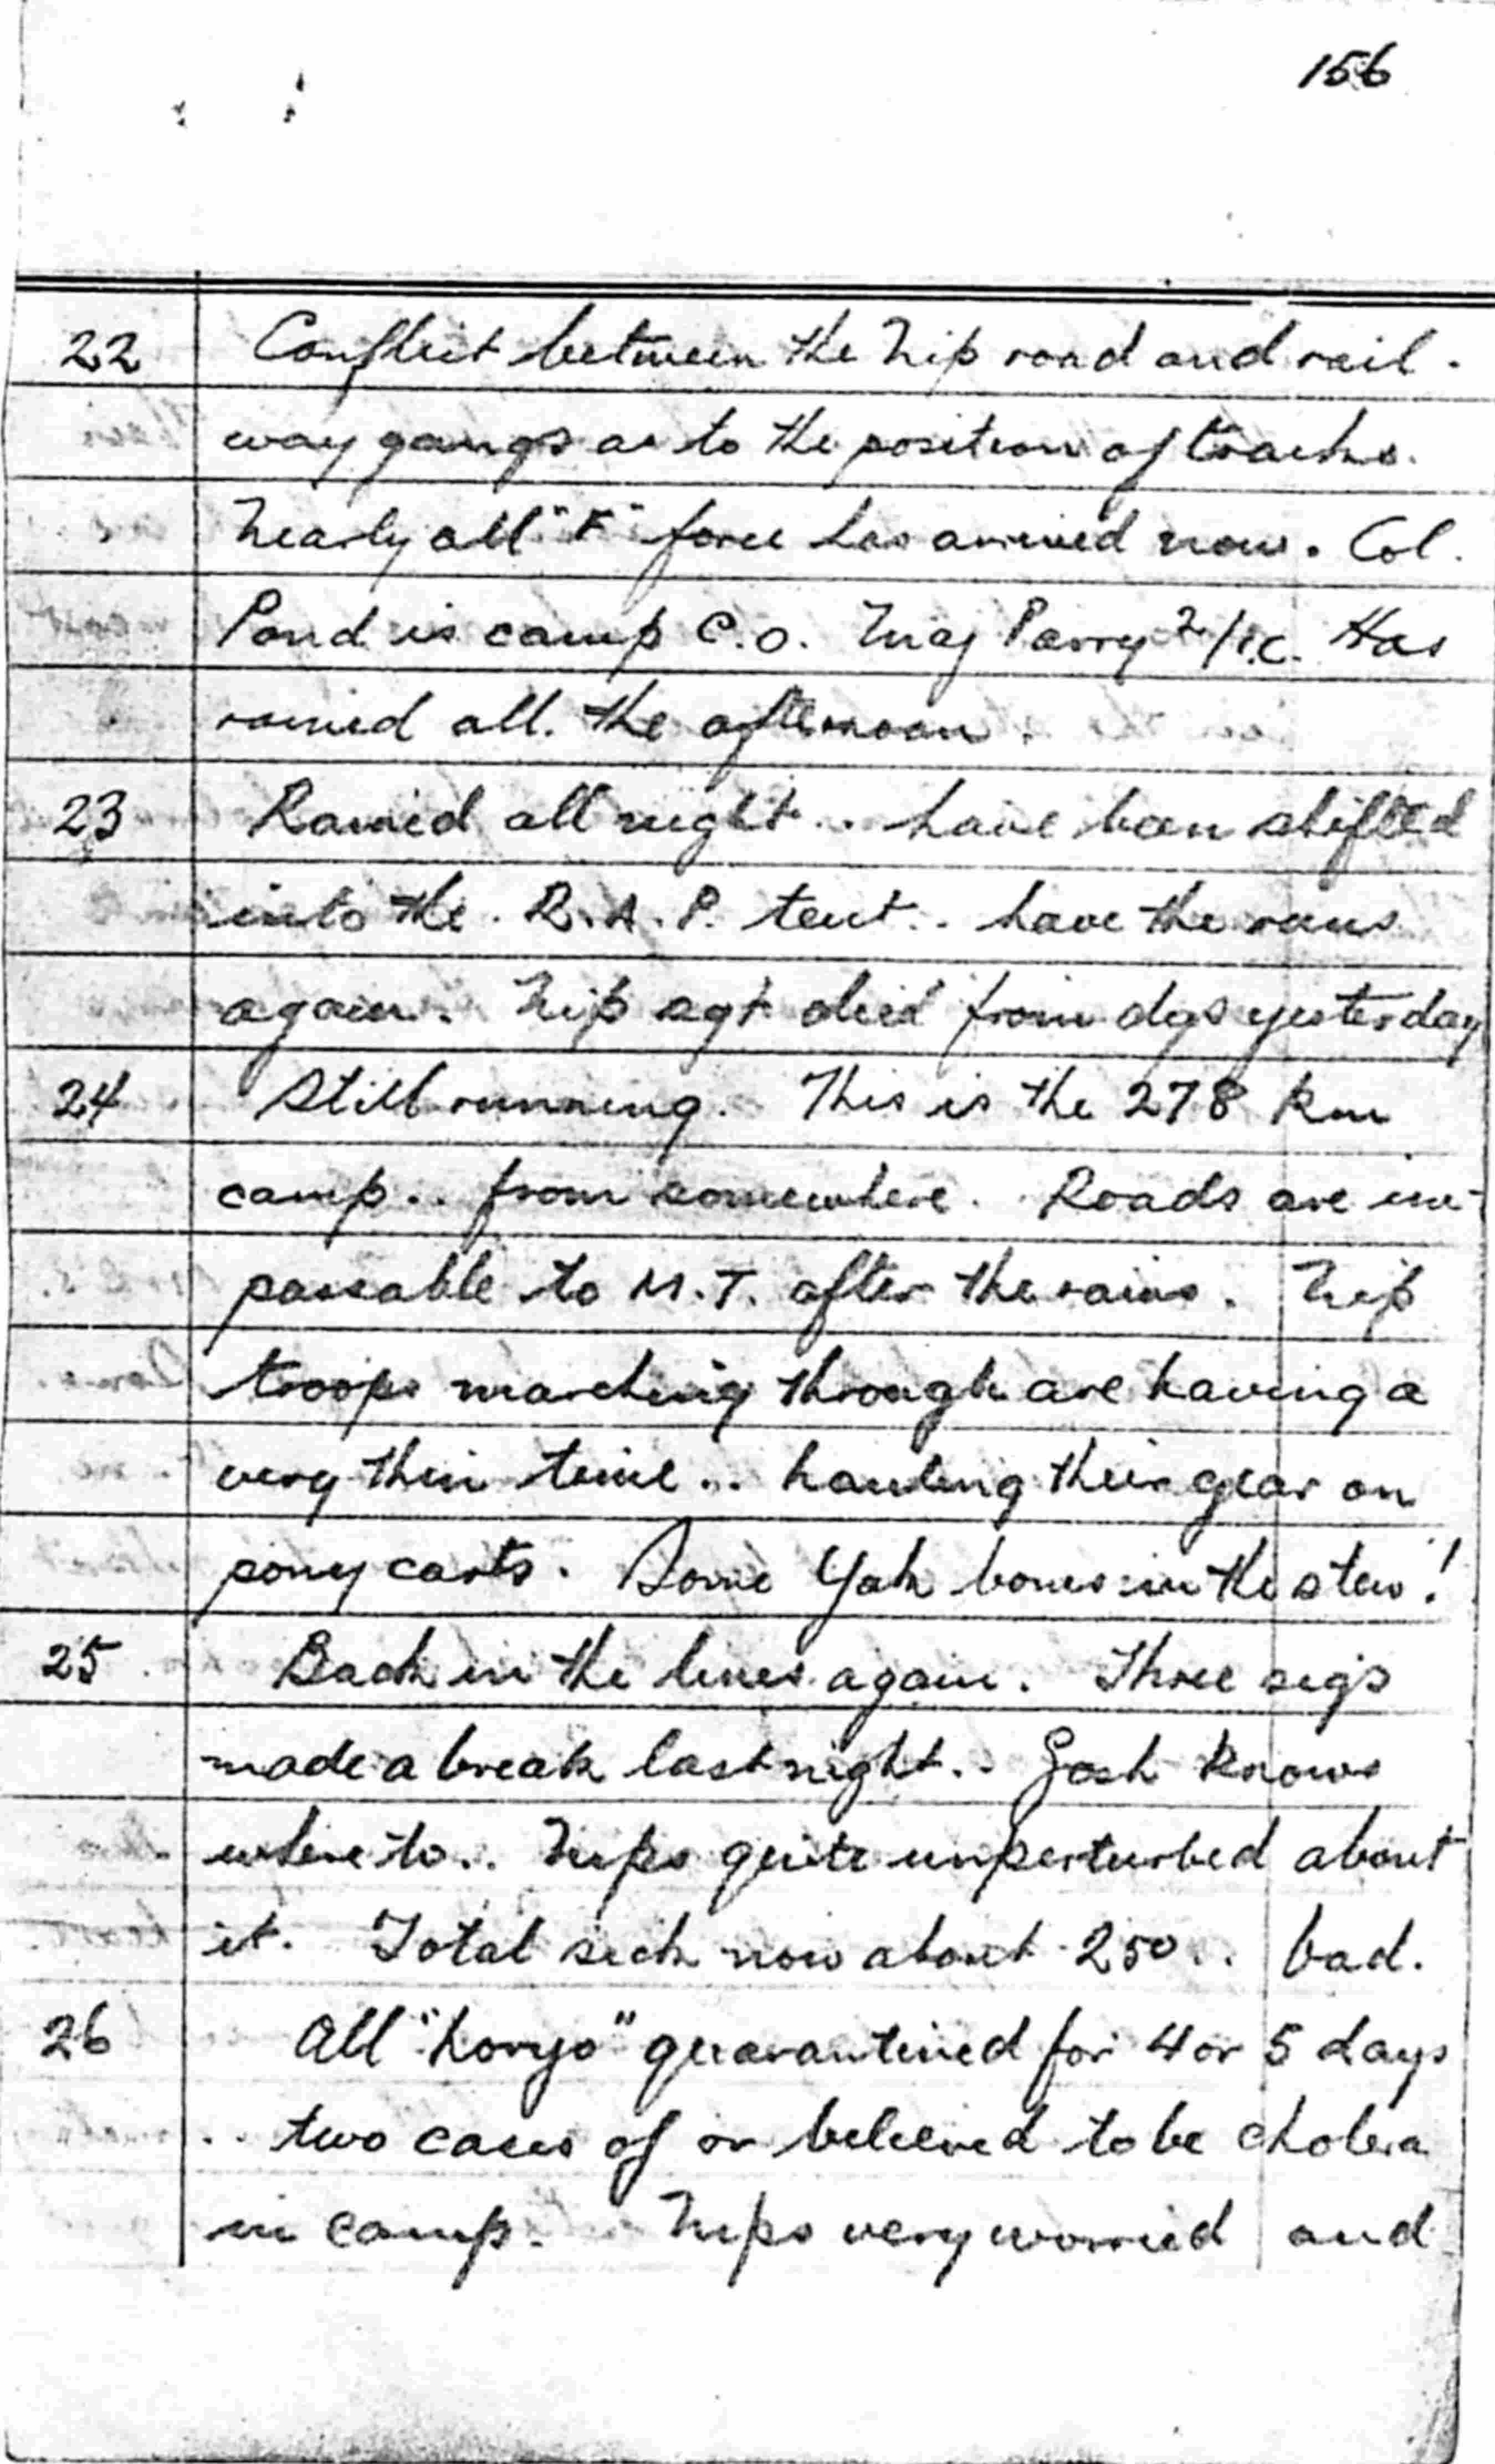 156
22 Conflict between the Nip road and rail-
way gangs as to the position of tracks.
Nearly all "F" force has arrived now. Col.
Pond is camp C.O. Maj Parry 2/i.c. Has
rained all the afternoon.
23 Rained all night .. have been shifted
into the R.A.P. tent .. have the runs
again. Nip sgt died from dys yesterday
24 Still running. This is the 278 Km
camp .. from somewhere. Roads are im-
passable to M.T. after the rains. Nip
troops marching through are having a
very thin time ... hauling their gear on
pony carts. Some Yak bones in the stew!
25 Back in the lines again. Three sigs
made a break last night .. Gosh knows
where to .. Nips quite unperturbed about
it. Total sick now about 250 .. bad.
26 All "horyo" quarantined for 4 or 5 days
.. two cases of or believed to be cholera
in camp. Nips very worried and